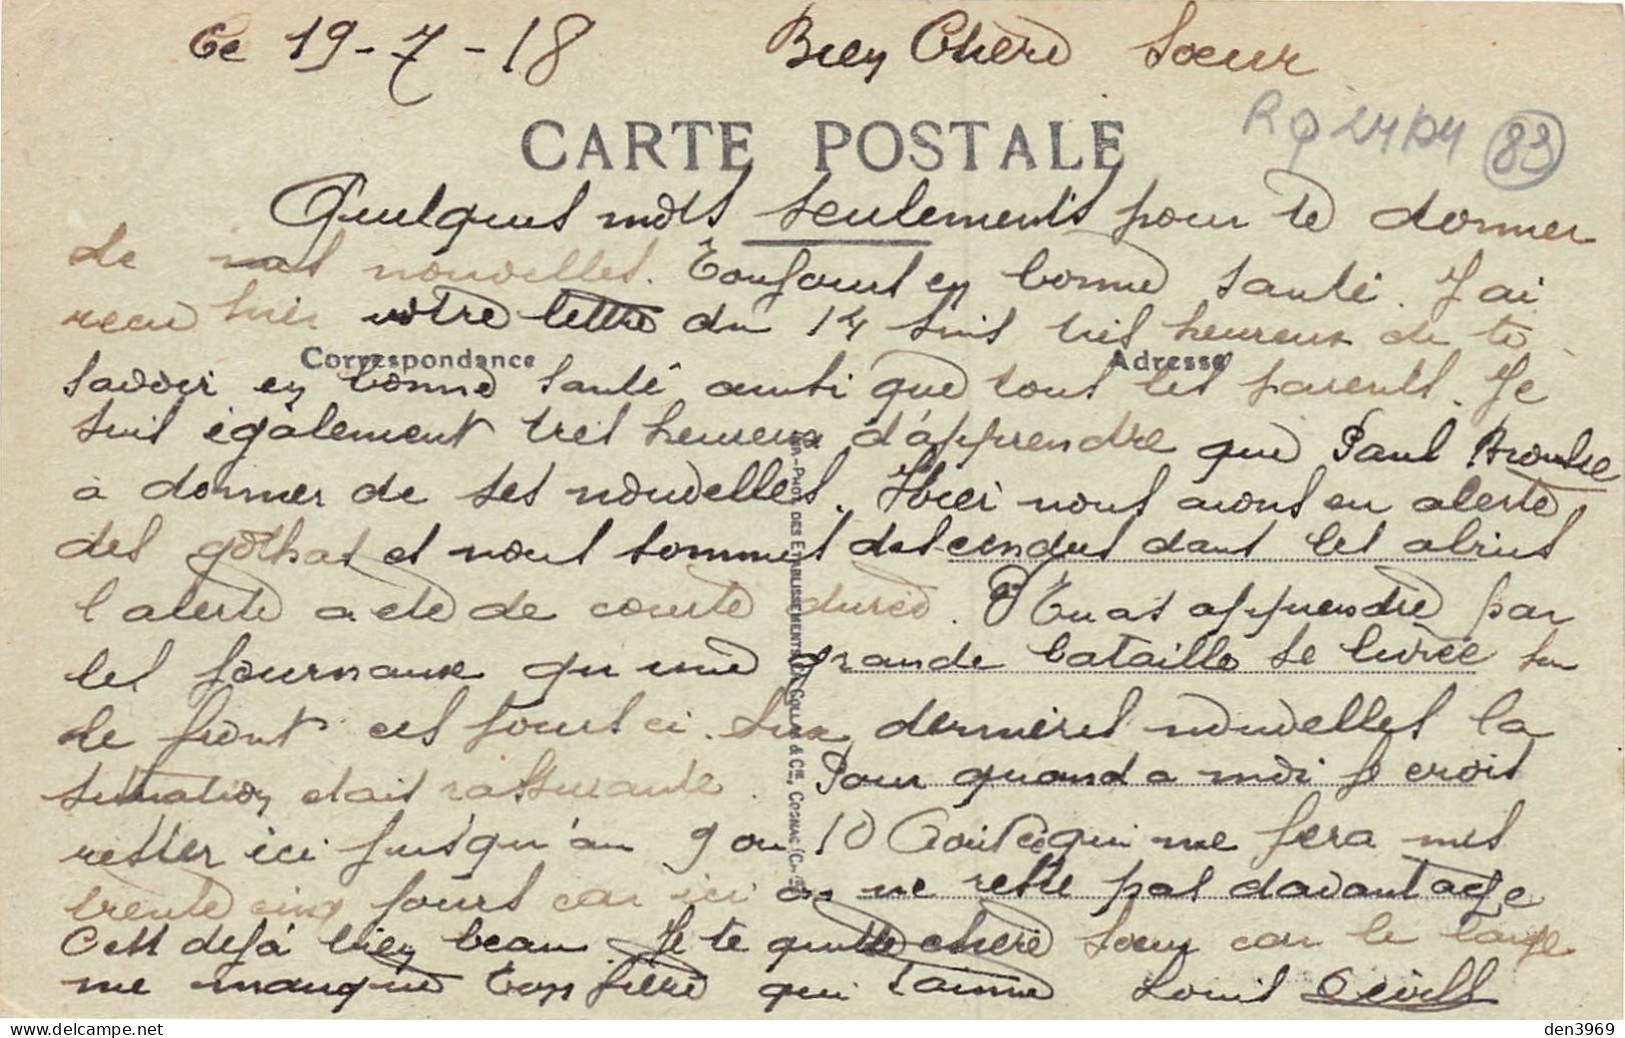 Ce 19-7-18 Bien Chère Sœur
CARTE POSTALE
83
Quelques mots seulements pour te donner
de mes nouvelles. Toujours en bonne santé. J'ai
recu hier votre lettre du 14 suis très heureux de te
Correspondance Adresse
savoir en bonne santé ainsi que tous les parents. Je
suis également très heureux d'apprendre que Paul
a donner de ses nouvelles. Hier nous avons eu alerte
des gothas et nous sommes descendus dans les abris
l'alerte a été de courte durée. Tu as apprendre par
les journaux qu'une grande bataille se livrée sur
le front ces jours ci. Aux dernières nouvelles la
situation était rassurante. Pour quand a moi je crois
rester ici jusqu'au 9 ou 10 Août ce qui me fera mes
trente cinq jours car ici on ne reste pas davantage
C'est déjà bien beau. Je te quitte chère sœur car la place
me manque Ton frère qui t'aime Louis
DES ETABLISSEMENTS COLLAS & Cie, COGNAC
den3969